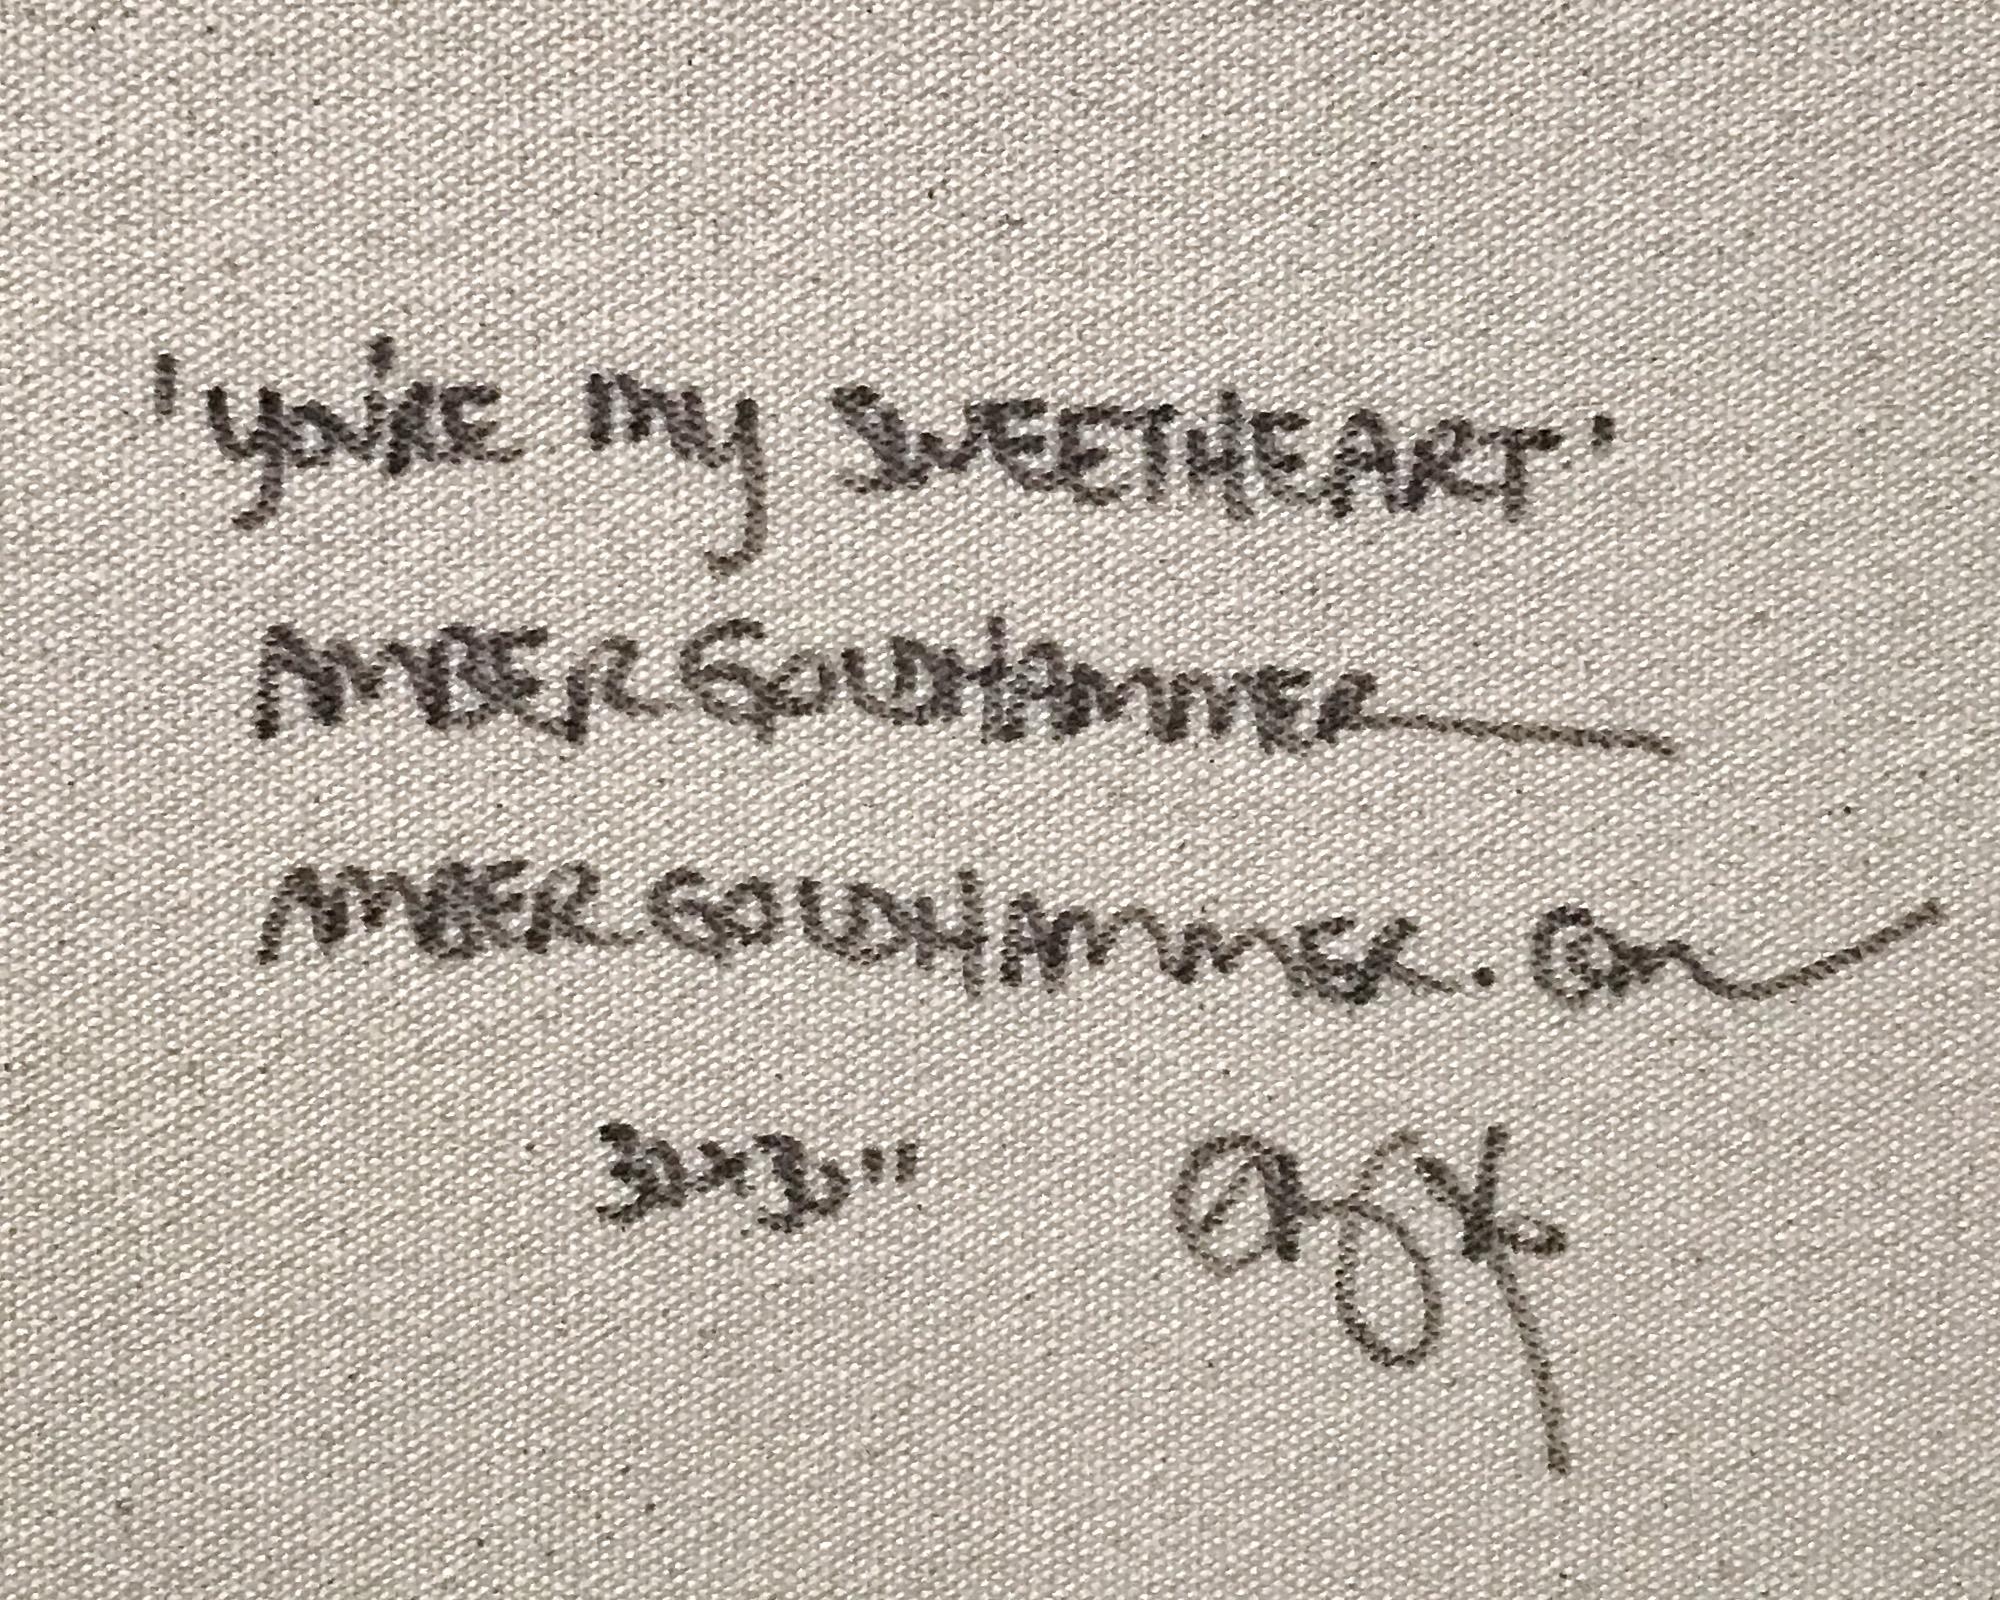 'you're my SWEETHEART'
AMBER GOLDHAMMER
AMBERGOLDHAMMER.COM
30x30"